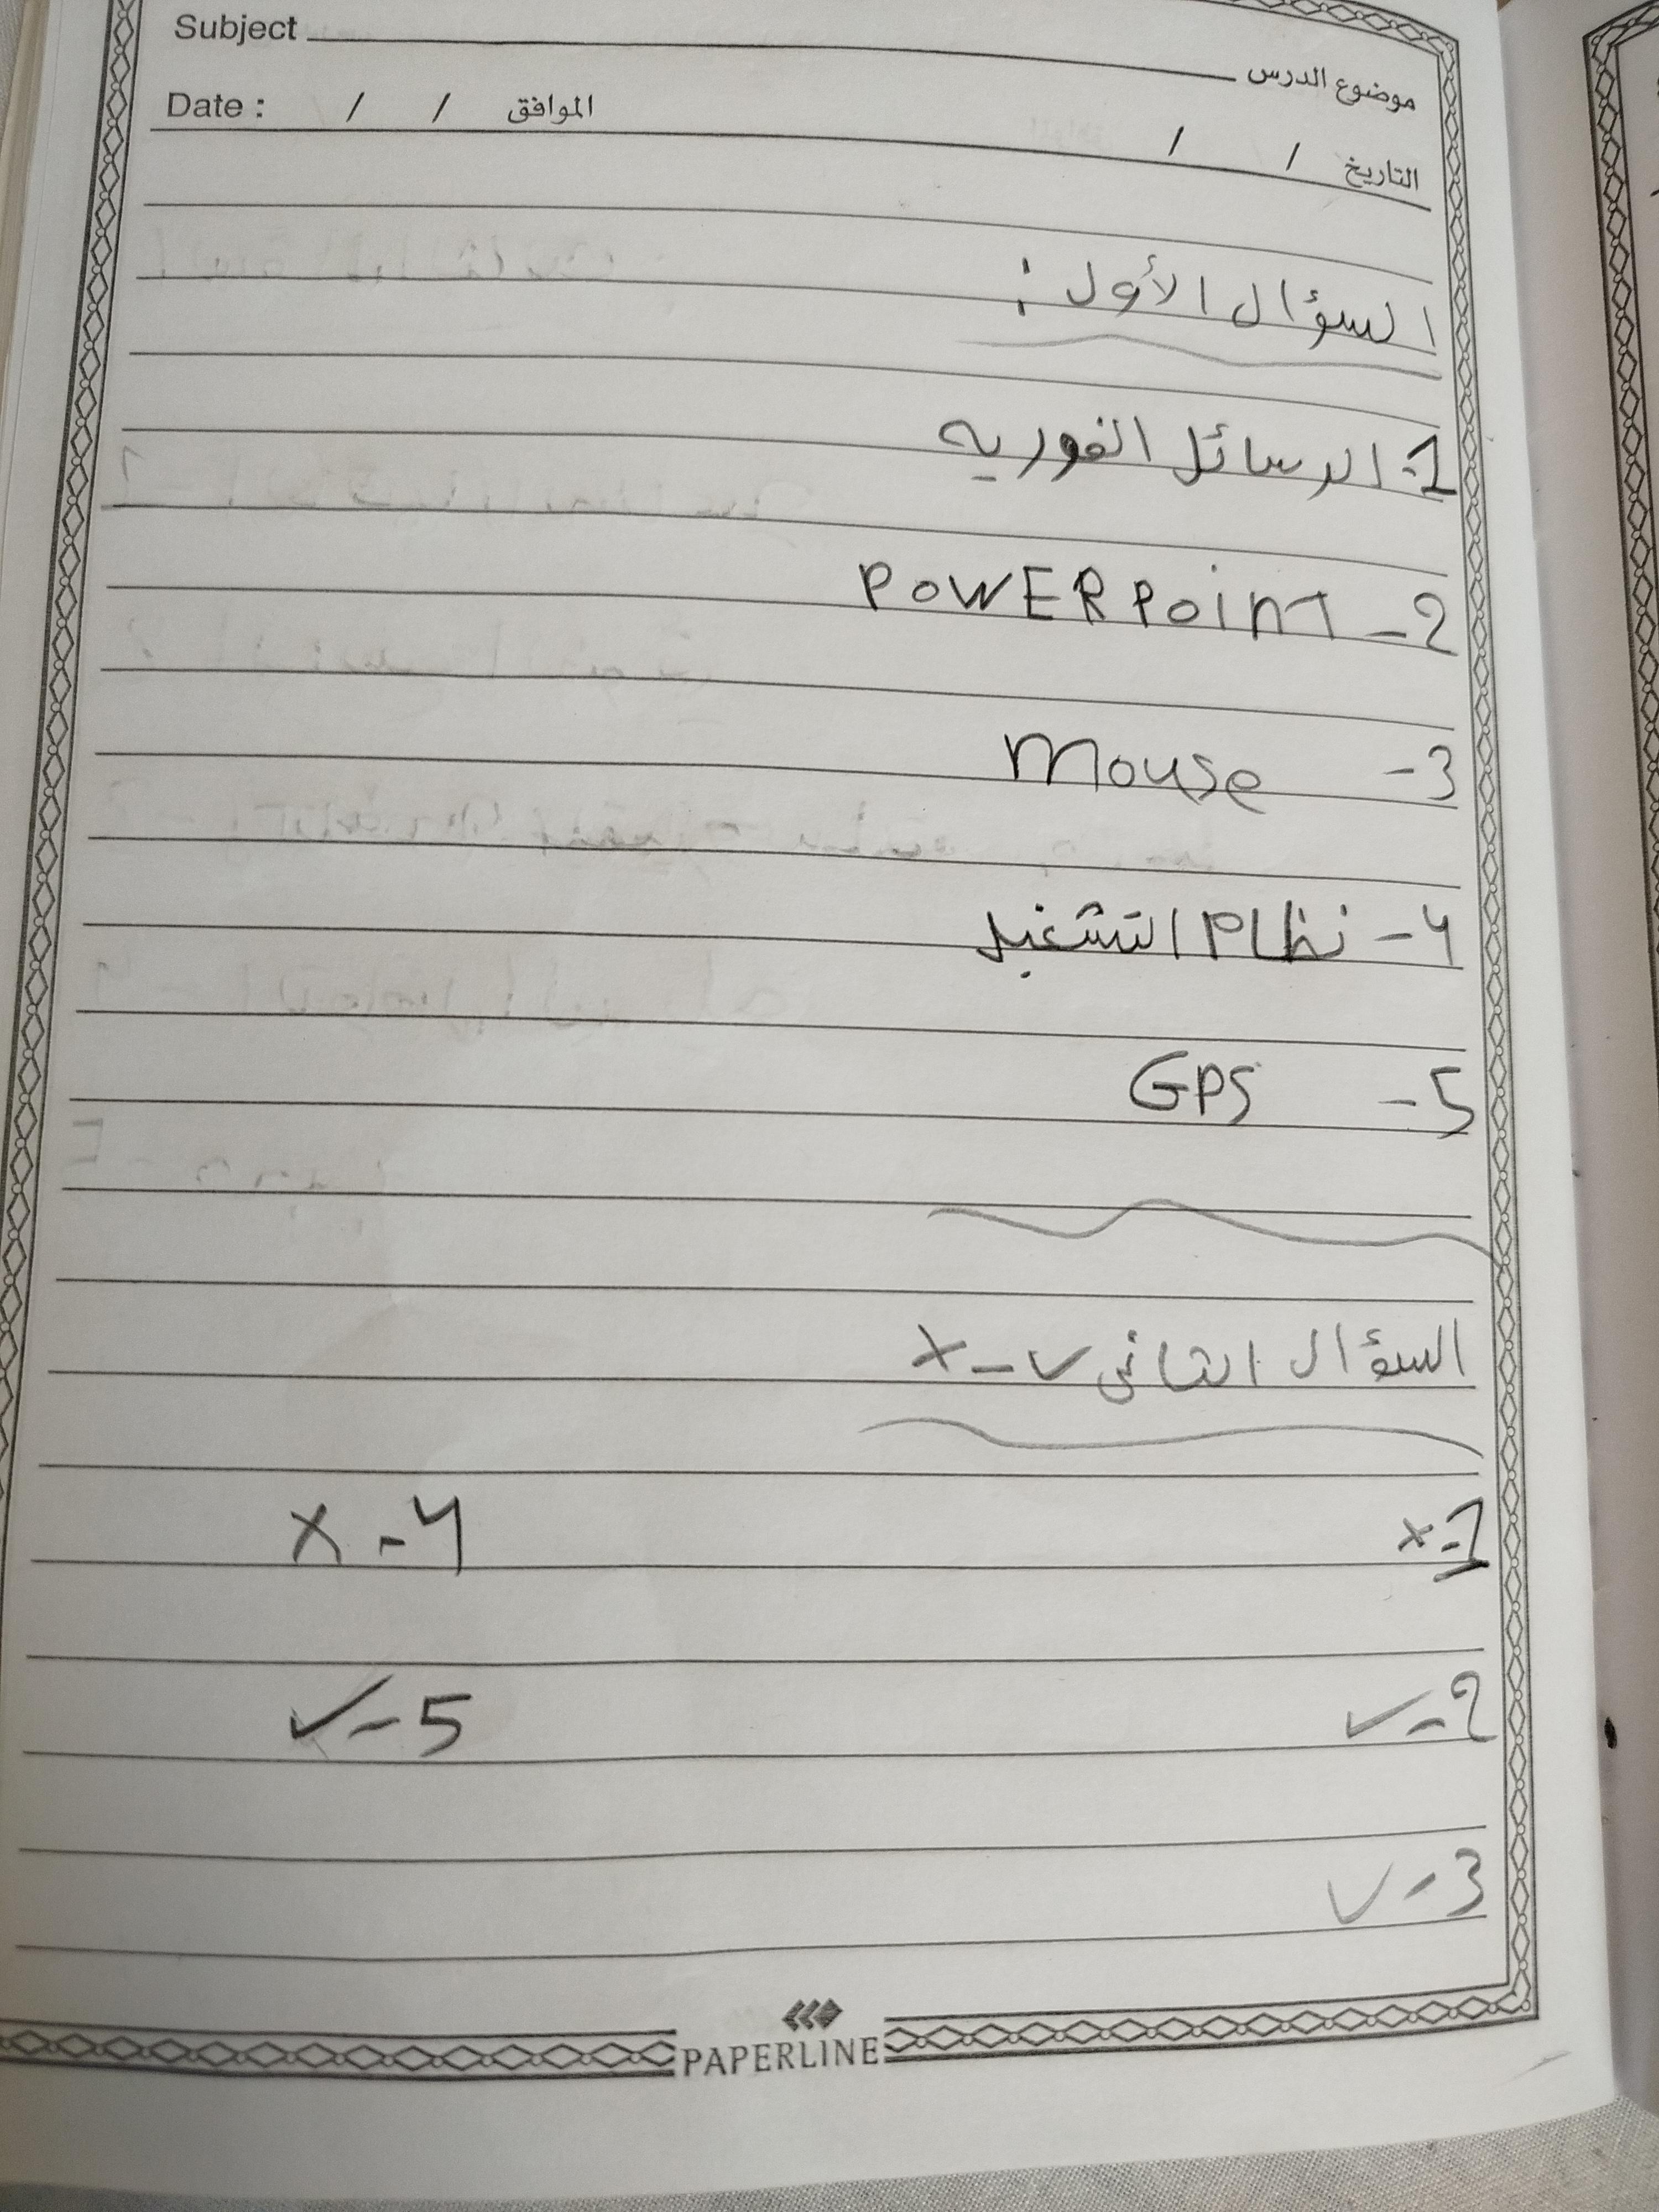 Subject موضوع الدرس
Date : / / الموافق / / التاريخ
السؤال الأول :
1- الرسائل الفوريه
POWERPoinT -2
mouse -3
4- نظام التشغيل
GPS -5
السؤال الثانى ✓ - x
x -1
x - 4
✓ - 2
✓ - 5
✓ - 3
PAPERLINE